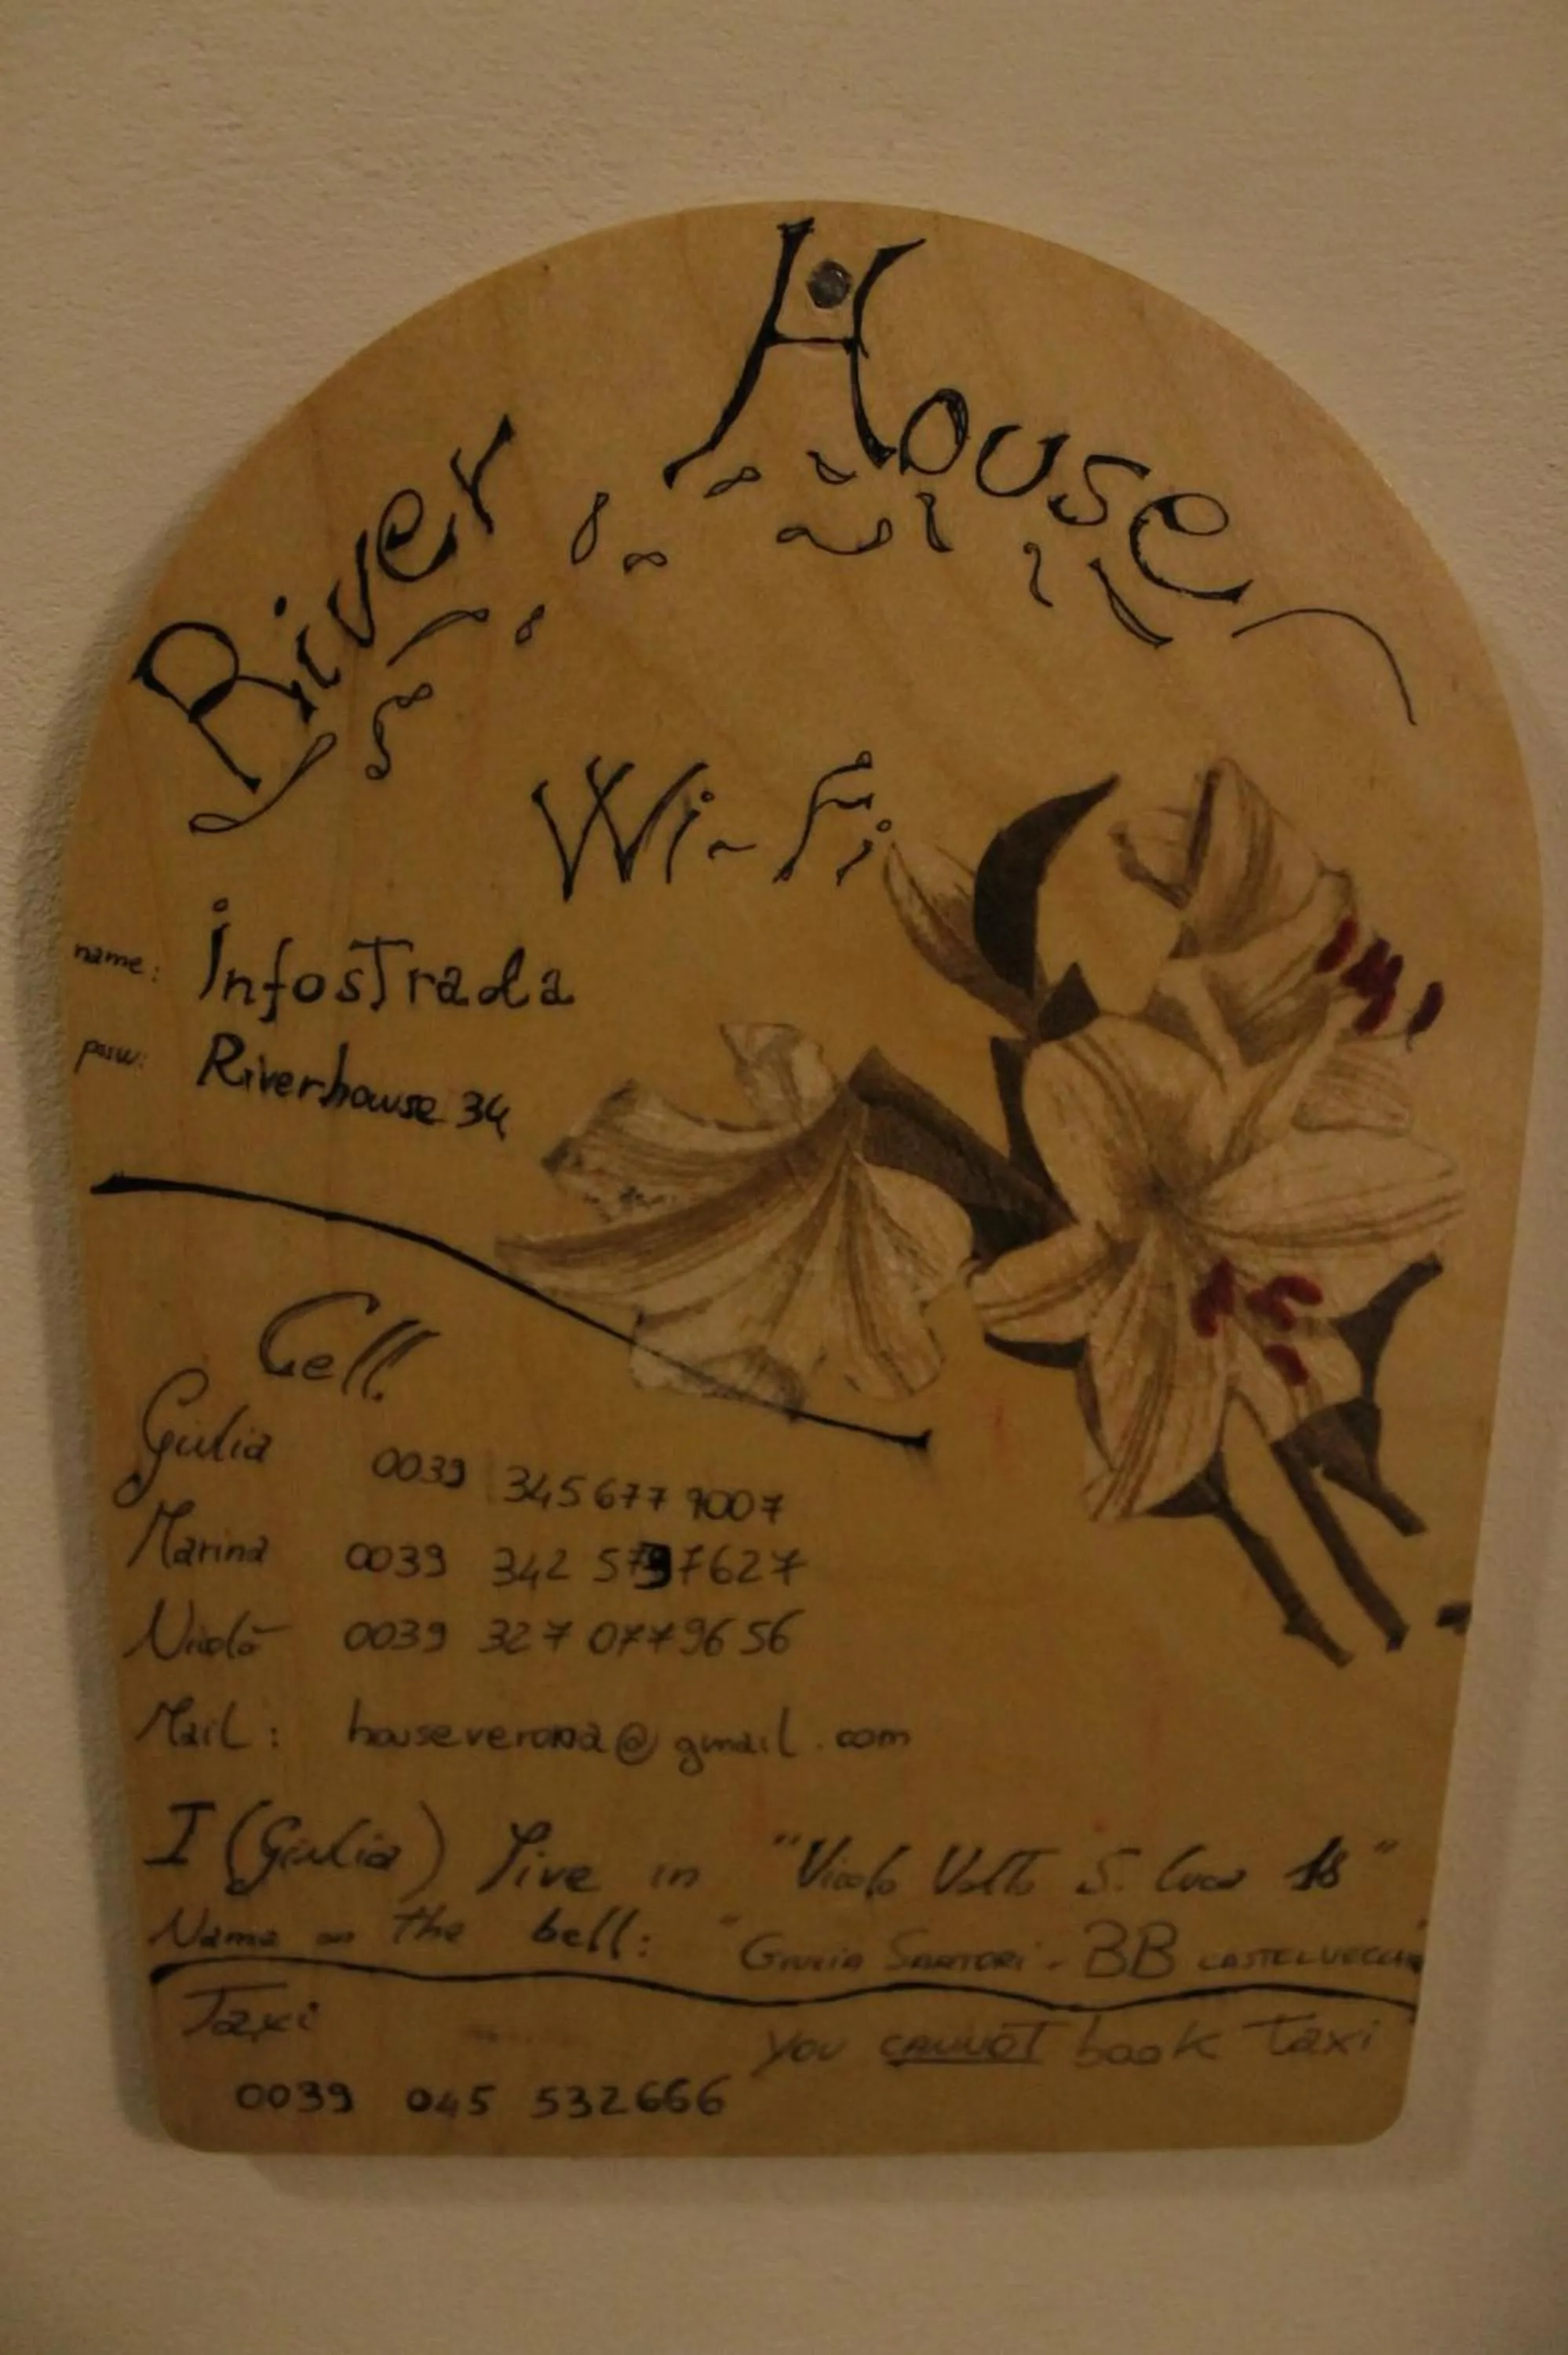 River House
Wi-Fi
name: InfosTrada
psw: Riverhouse 34
Cell.
Giulia 0039 345 677 9007
Marina 0039 342 5797627
Nicolò 0039 327 0779656
Mail: houseverona@gmail.com
I (Giulia) live in "Vicolo Volto S. Luca"
Name on the bell: "Giulia Sartori - BB CASTELVECCHIO"
Taxi
you CANNOT book Taxi
0039 045 532666